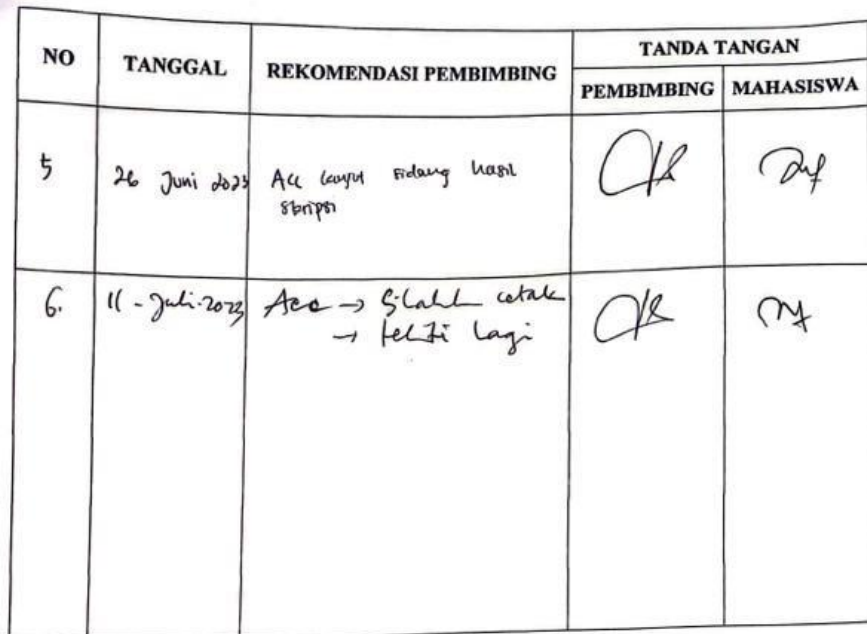 NO TANGGAL REKOMENDASI PEMBIMBING TANDA TANGAN
PEMBIMBING MAHASISWA
5 26 Juni 2023 Acc lanjut sidang hasil
skripsi
6. 11 - Juli - 2023 Acc → Silahk cetak
→ teliti lagi